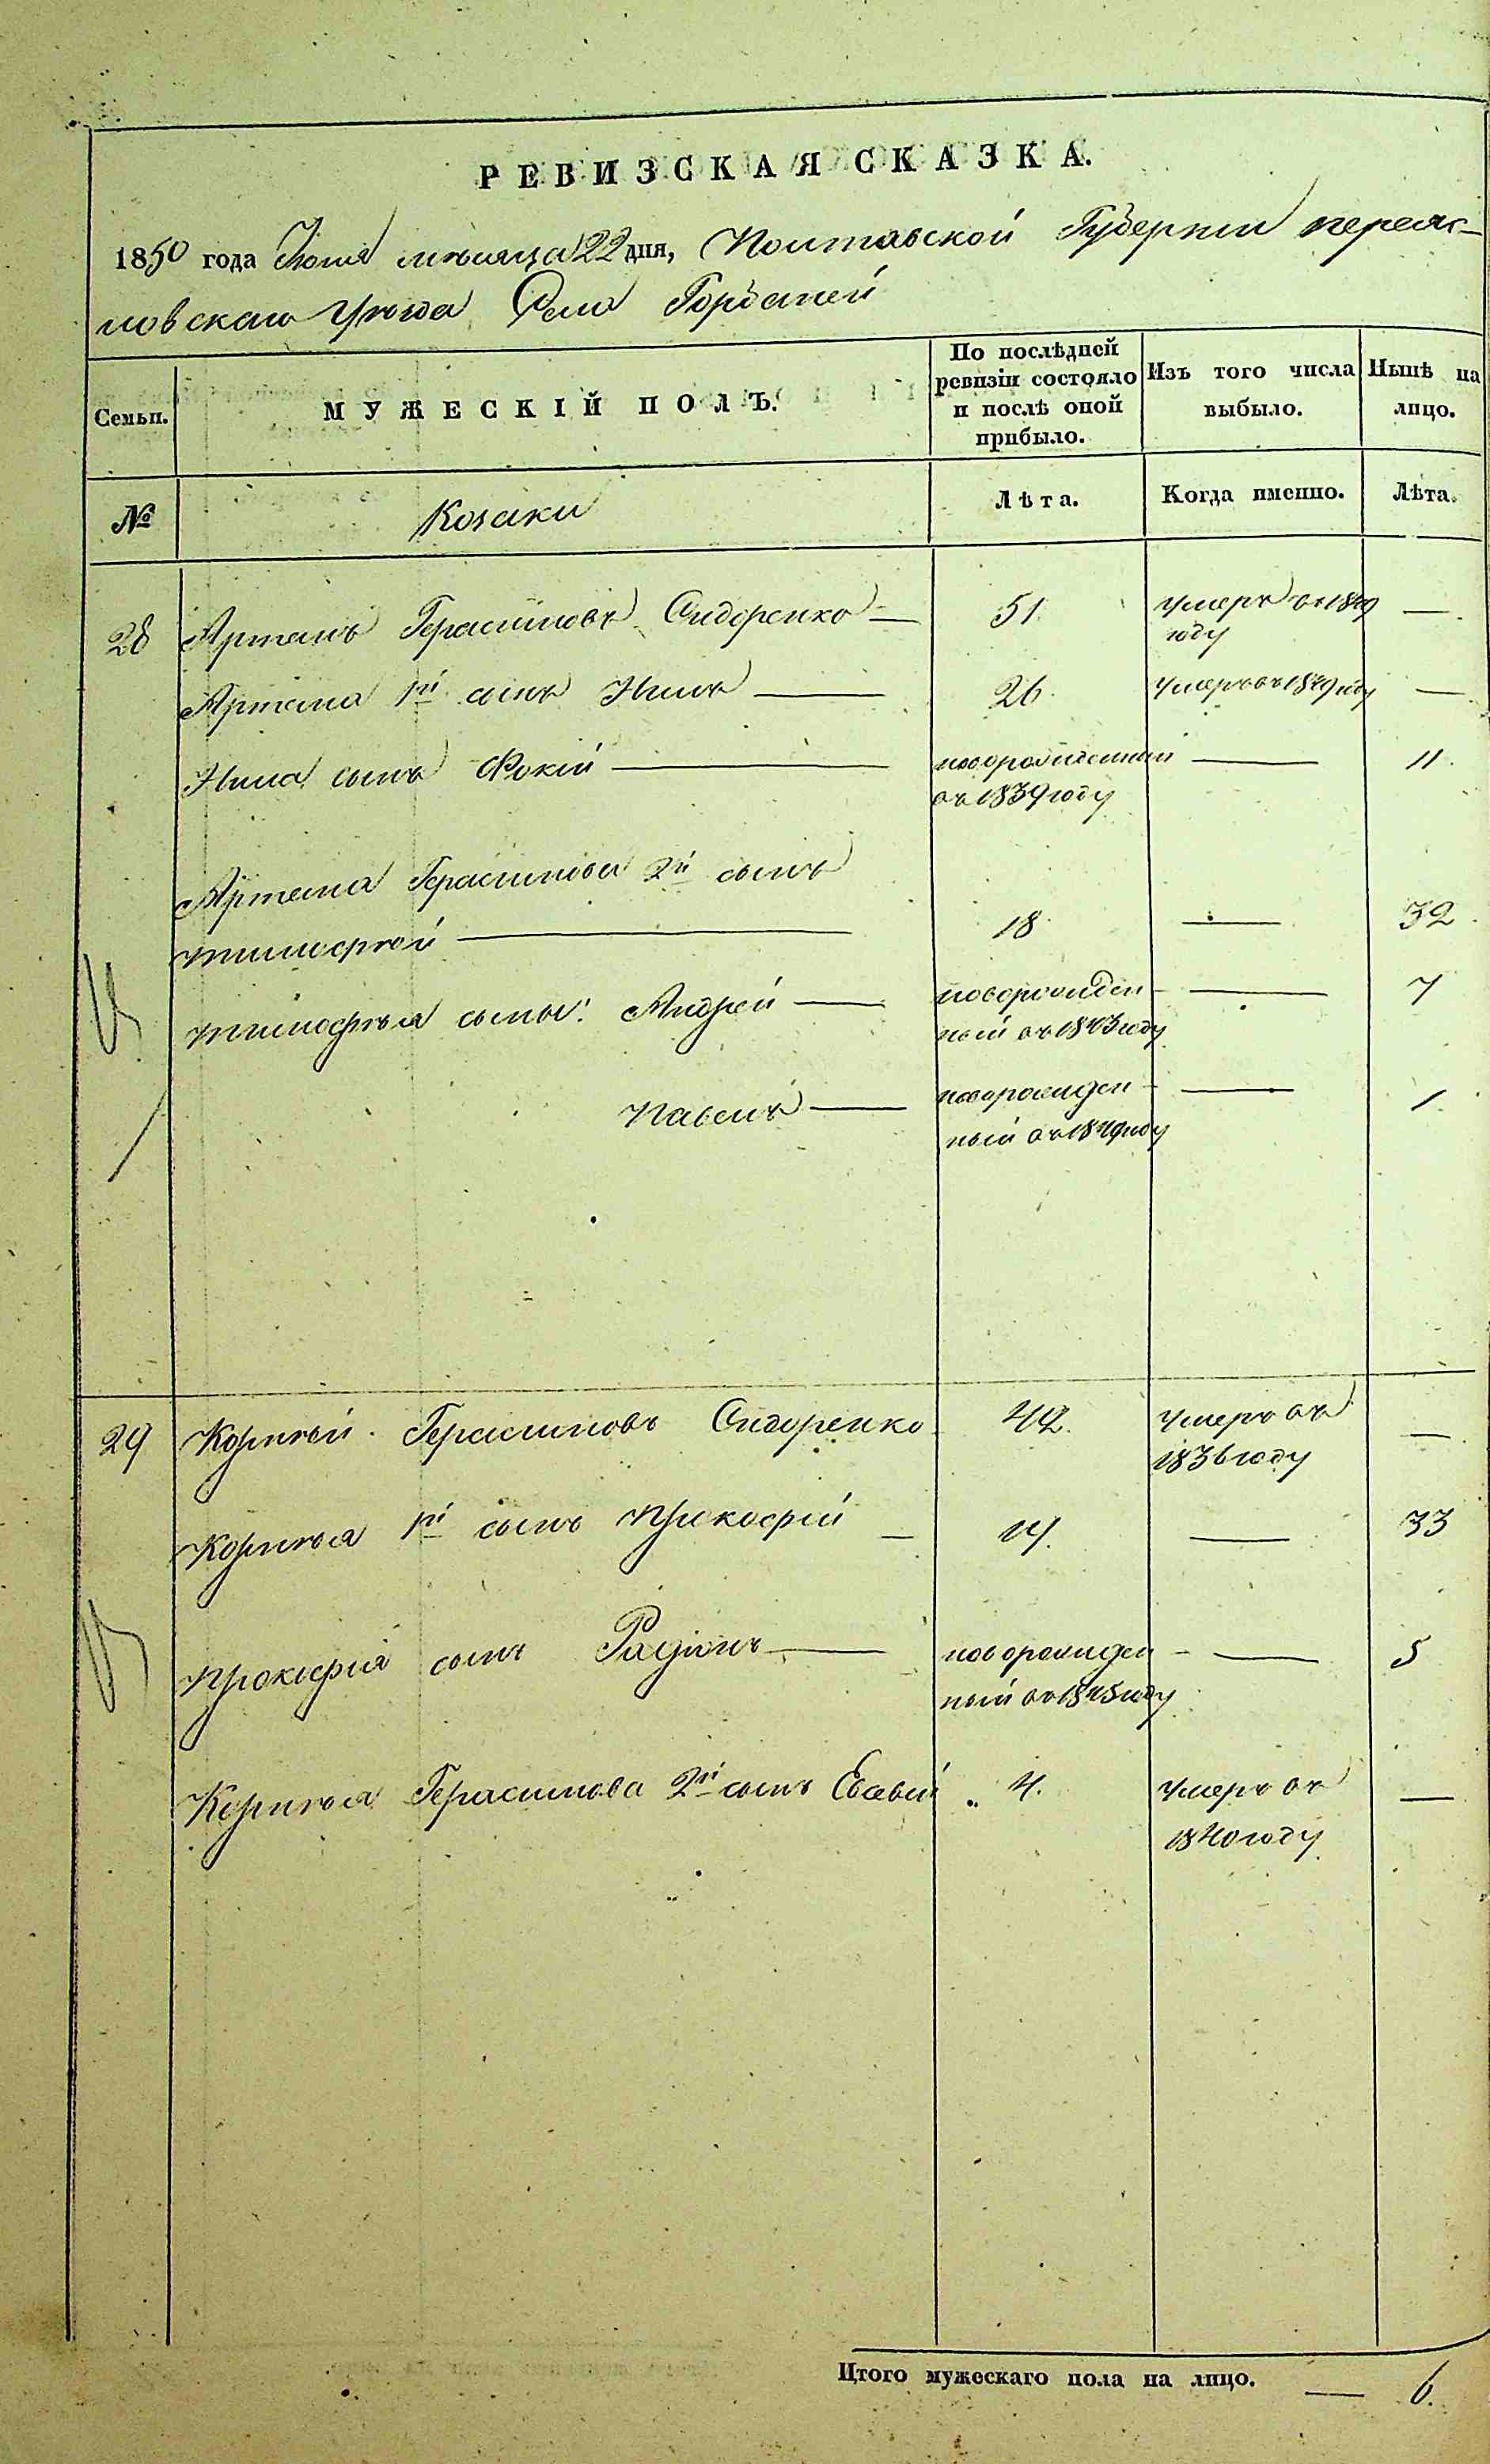 РЕВИЗСКАЯ СКАЗКА.
1850 года Июня мѣсяца 22 дня, Полтавской Губернии переяс-
ловскаго Уезда Села Горбаней
Семьи.
МУЖЕСКІЙ ПОЛЪ.
По послѣдней
ревизіи состояло
и послѣ оной
прибыло.
Изъ того числа
выбыло.
Нынѣ на
лицо.
№
Козаки
Лѣта.
Когда именно.
Лѣта.
28 Артемъ Герасимовъ Сидоренко — 51. умеръ въ 1849 —
году
Артема 1й сынъ Нилъ — 26. умеръ въ 1849 году —
Нила сынъ Фокій — новорожденный — 11.
въ 1839 году
Артема Герасимова 2й сынъ
тимофей — 18. — 32.
тимофея сыны: Андрей — новорожден- — 7
ный въ 1843 году
Павелъ — новорожден- — 1.
ный въ 1849 году
29 Корней Герасимовъ Сидоренко 42. умеръ въ —
1836 году
Корнея 1й сынъ Прокофій — — 33
Прокофія сынъ Радіонъ — новорожден- — 5
ный въ 1845 году
Корнея Герасимова 2й сынъ 4. умеръ въ —
1840 году
Итого мужескаго пола на лицо. — 6.